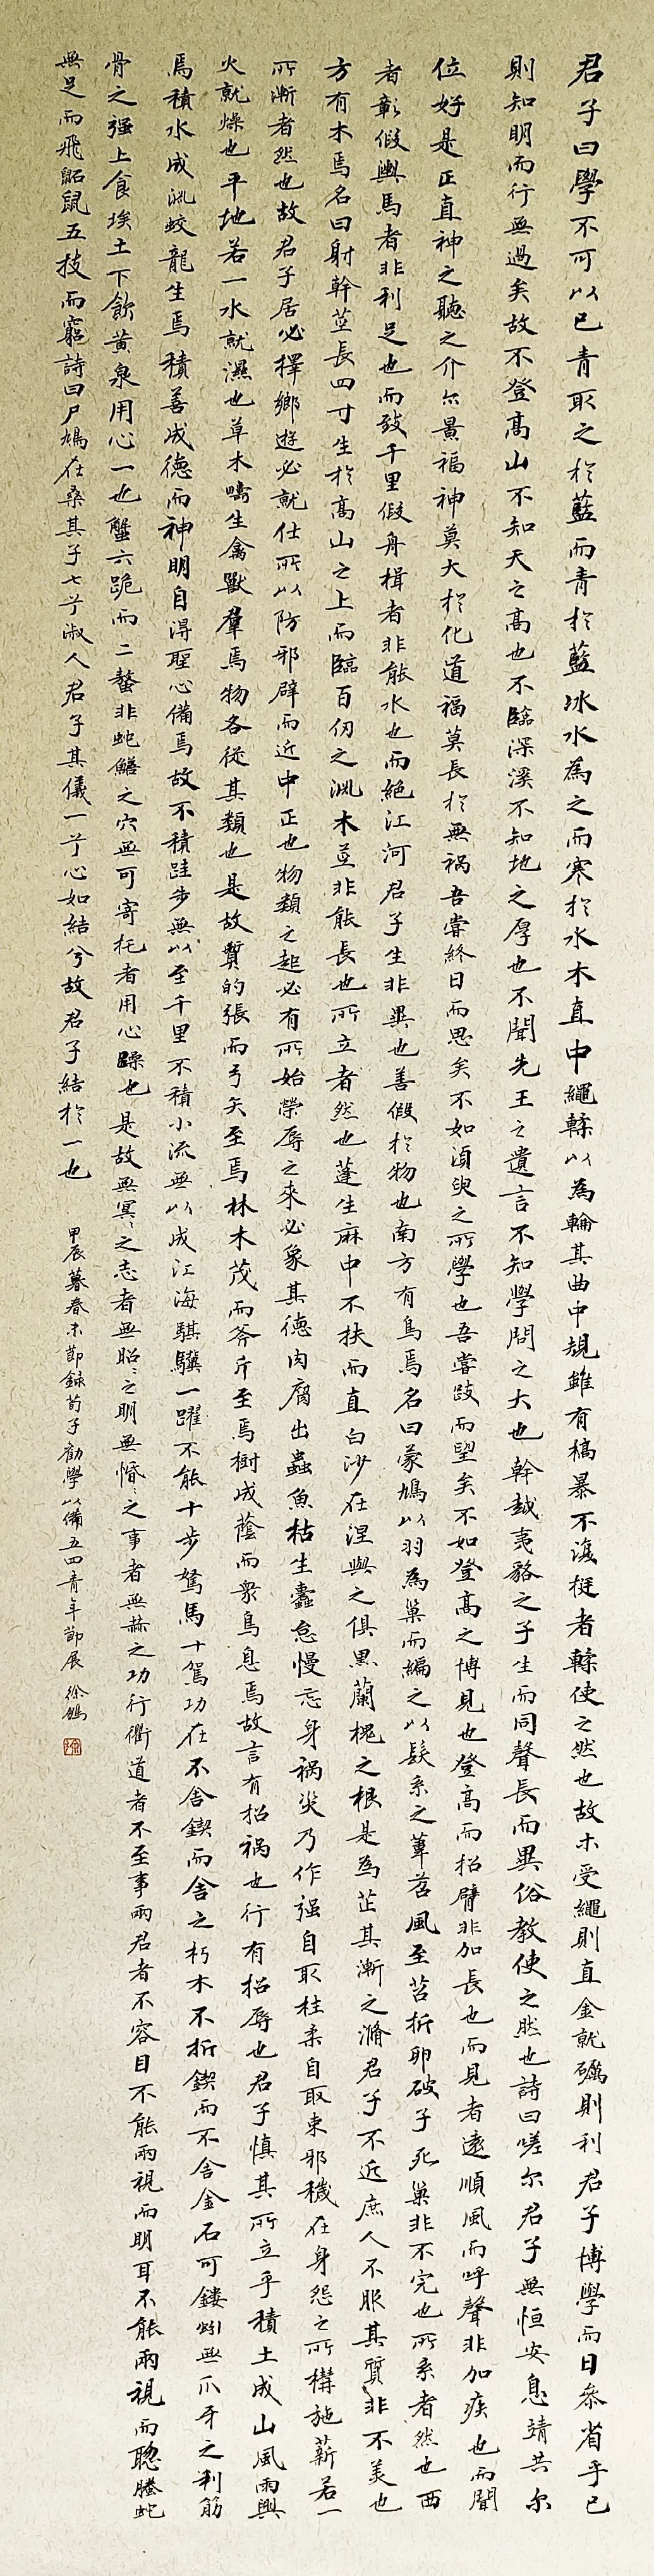 君子曰學不可以已青取之於藍而青於藍冰水為之而寒於水木直中繩輮以為輪其曲中規雖有槁暴不復挺者輮使之然也故木受繩則直金就礪則利君子博學而日參省乎己
則知明而行無過矣故不登高山不知天之高也不臨深溪不知地之厚也不聞先王之遺言不知學問之大也幹越夷貉之子生而同聲長而異俗教使之然也詩曰嗟尔君子無恒安息靖共尔
位好是正直神之聽之介尔景福神莫大於化道福莫長於無禍吾嘗終日而思矣不如須臾之所學也吾嘗跂而望矣不如登高之博見也登高而招臂非加長也而見者遠順風而呼聲非加疾也而聞
者彰假輿馬者非利足也而致千里假舟楫者非能水也而絕江河君子生非異也善假於物也南方有鳥焉名曰蒙鳩以羽為巢而編之以髮系之葦苕風至苕折卵破子死巢非不完也所系者然也西
方有木焉名曰射幹莖長四寸生於高山之上而臨百仞之淵木莖非能長也所立者然也蓬生麻中不扶而直白沙在涅與之俱黑蘭槐之根是為芷其漸之滫君子不近庶人不服其質非不美也
所漸者然也故君子居必擇鄉遊必就仕所以防邪辟而近中正也物類之起必有所始榮辱之來必象其德肉腐出蟲魚枯生蠹怠慢忘身禍災乃作强自取柱柔自取束邪穢在身怨之所構施薪若一
火就燥也平地若一水就濕也草木疇生禽獸羣焉物各從其類也是故質的張而弓矢至焉林木茂而斧斤至焉樹成蔭而衆鳥息焉故言有招禍也行有招辱也君子慎其所立乎積土成山風雨興
焉積水成淵蛟龍生焉積善成德而神明自得聖心備焉故不積跬步無以至千里不積小流無以成江海騏驥一躍不能十步駑馬十駕功在不舍鍥而舍之朽木不折鍥而不舍金石可鏤蚓無爪牙之利筋
骨之强上食埃土下飲黃泉用心一也蟹六跪而二螯非蛇鱔之穴無可寄托者用心躁也是故無冥冥之志者無昭昭之明無惛惛之事者無赫之功行衢道者不至事兩君者不容目不能兩視而明耳不能兩視而聰螣蛇
無足而飛鼫鼠五技而窮詩曰尸鳩在桑其子七兮淑人君子其儀一兮心如結兮故君子結於一也
甲辰暮春末節錄荀子勸學以備五四青年節展 徐鶴